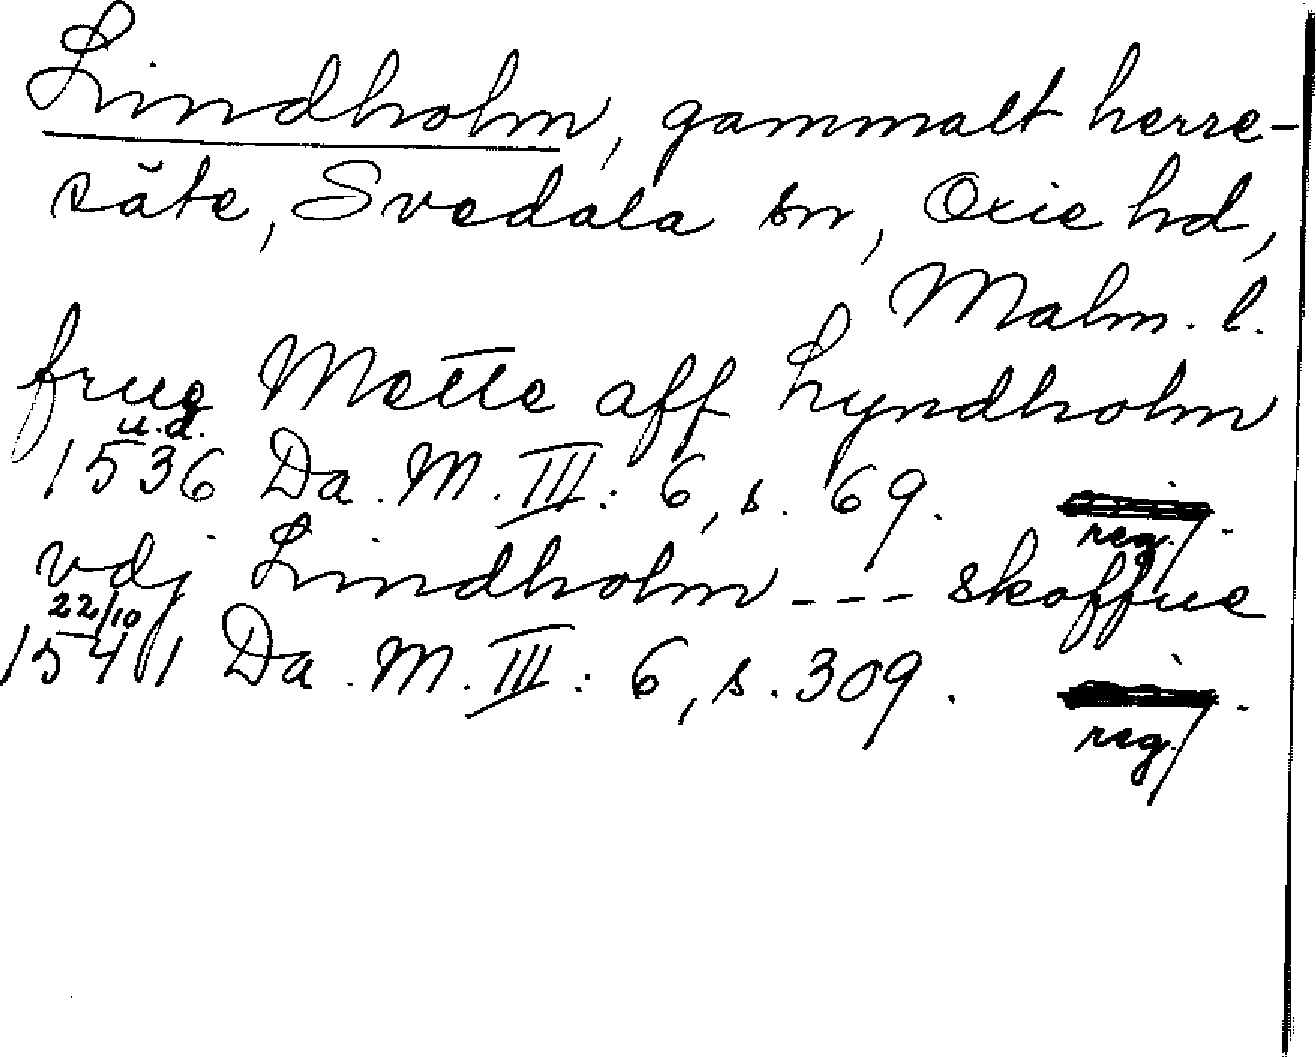 Lindholm, gammalt herre-
säte, Svedala sn, Oxie hd,
Malm. l.
frue Mette aff Lyndholm
u.d.
1536 Da. M. III: 6, s. 69.
reg.
vdj Lindholm --- skoffue
22/10
1541 Da. M. III: 6, s. 309.
reg.